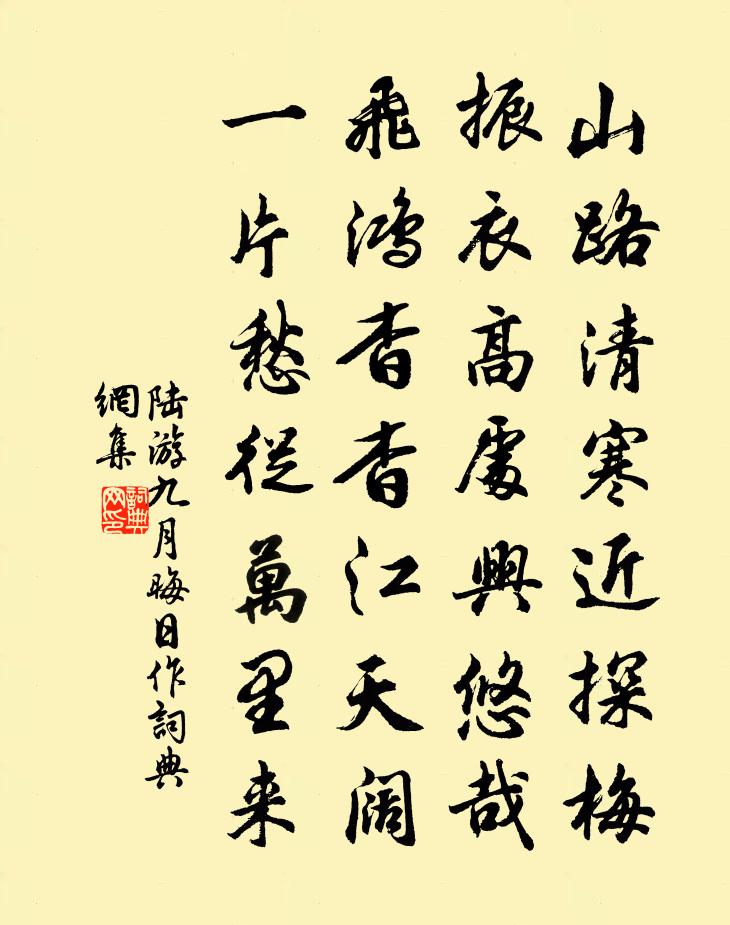 山路清寒近探梅
振衣高處興悠哉
飛鴻杳杳江天闊
一片愁從萬里来
陆游九月晦日作詞典
網集
詞典
网印